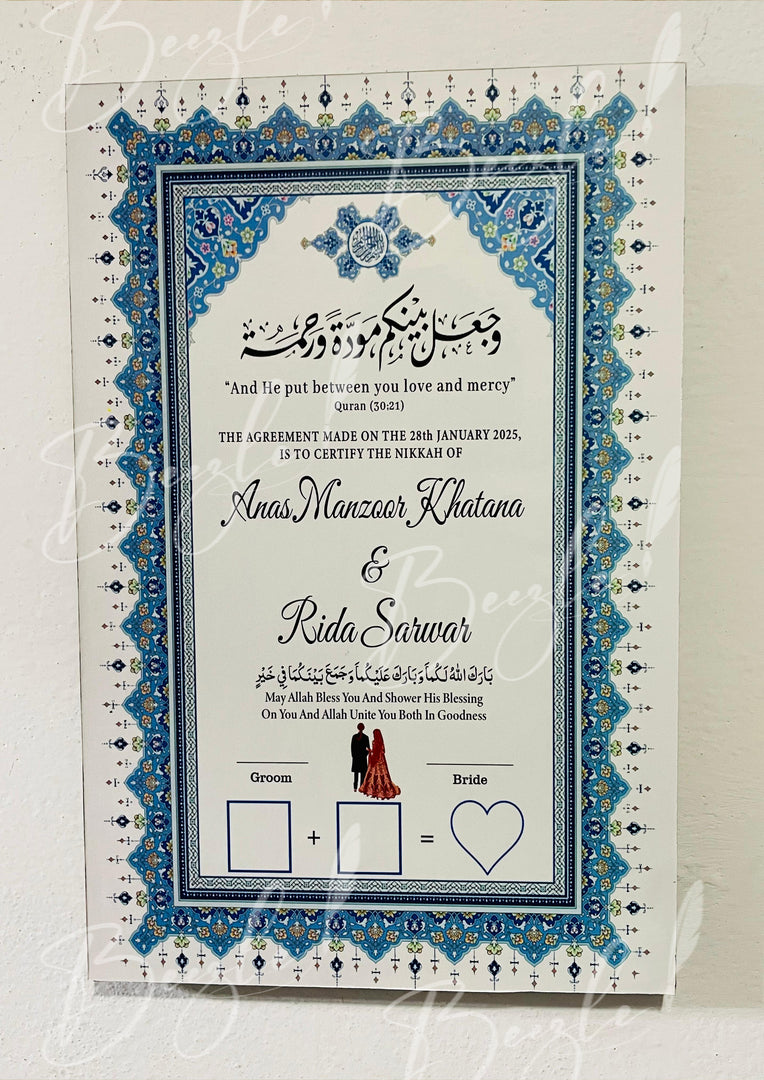 وَجَعَلَ بَيْنَكُم مَوَدَّةً وَرَحْمَةً
“And He put between you love and mercy”
Quran (30:21)
THE AGREEMENT MADE ON THE 28th JANUARY 2025,
IS TO CERTIFY THE NIKKAH OF
Anas Manzoor Khatana
&
Rida Sarwar
بَارَكَ اللهُ لَكُمَا وَبَارَكَ عَلَيْكُمَا وَجَمَعَ بَيْنَكُمَا فِي خَيْرٍ
May Allah Bless You And Shower His Blessing
On You And Allah Unite You Both In Goodness
Groom
Bride
+ =
Beezle!
Beezle!
Beezle!
Beezle!
Beezle!
Beezle!
Beezle!